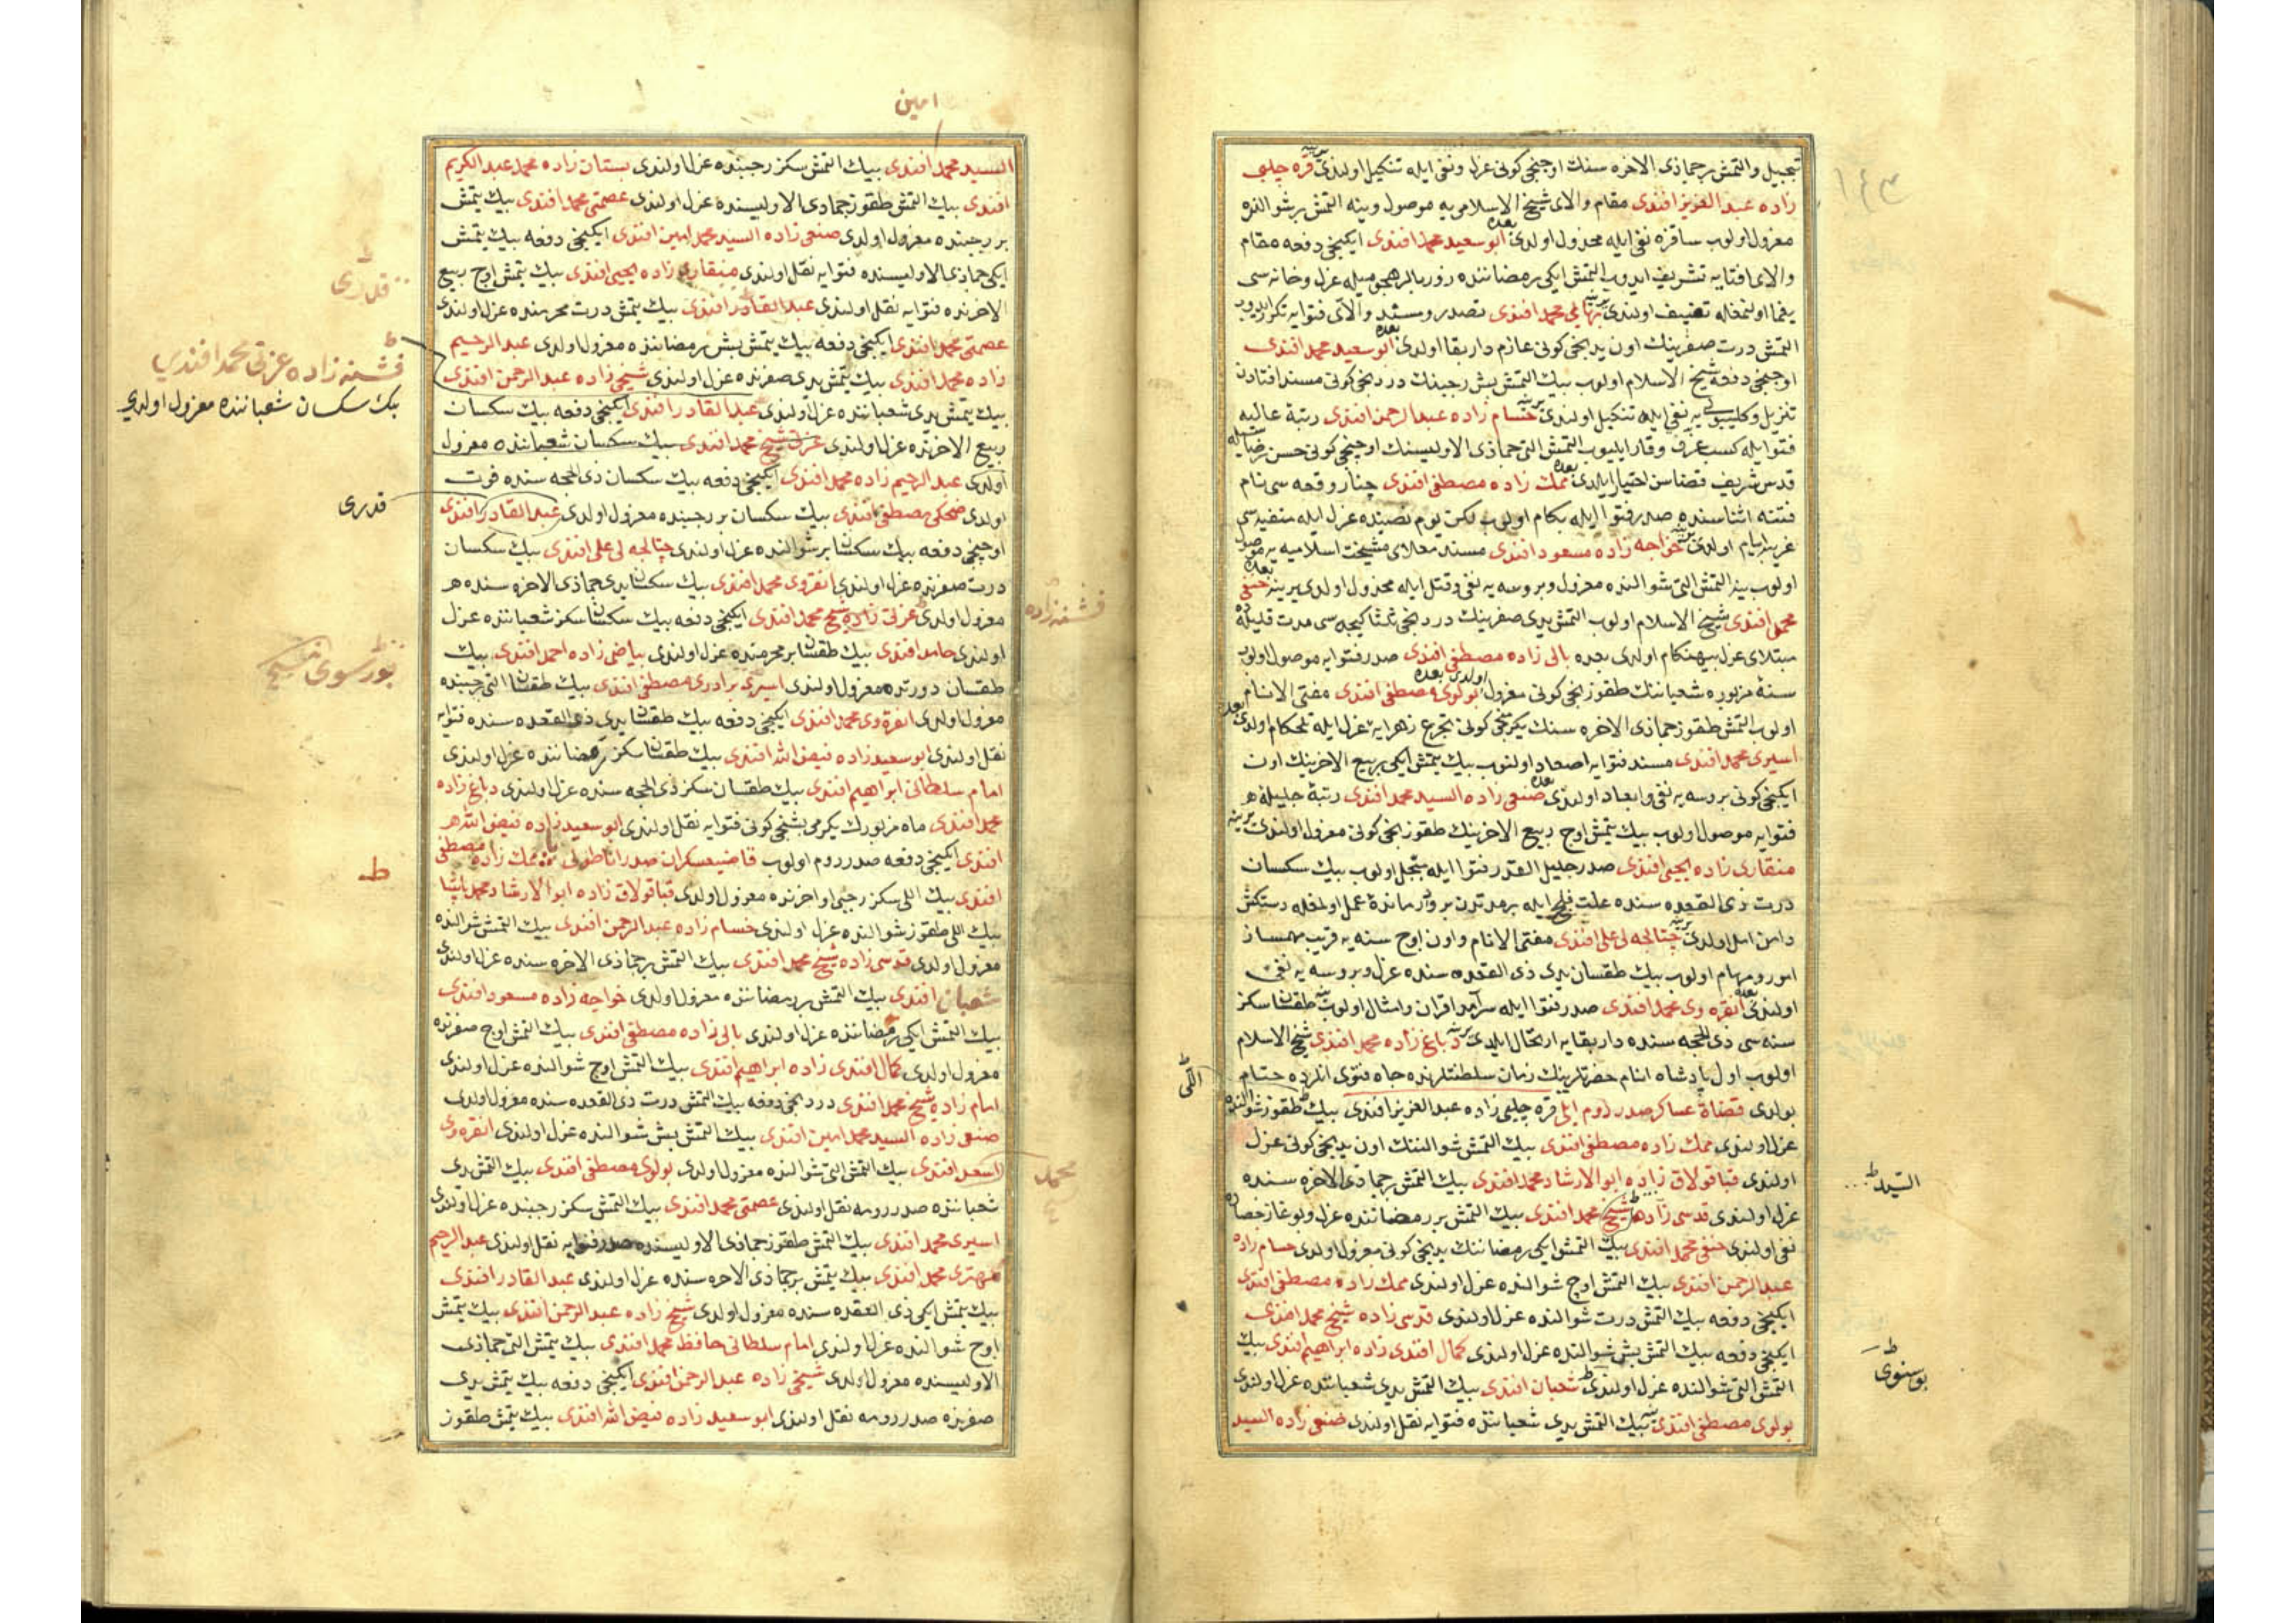 تبجیل والتمش بر جماذی الاخره سنك اوچنجی كونی عزل ونفی ایله تنكیل اولندی یرینه قره چلبی
زاده عبد العزیز افندی مقام والای شیخ الاسلامی یه موصول وینه التمش بر شوالنده
معزول اولوب ساقزه نفی ایله مخذول اولدی بعده ابو سعید محمد افندی ایكنجی دفعه مقام
والای افتایه تشریف ایدوب التمش ایكی رمضاننده زوربالر هجومیله عزل وخانه سی
یغما اولنمغله تضییف اولندی یرینه بهائی محمد افندی تصدر ومسند والای فتوایه تكرار ایدوب
التمش درت صفرینك اون یدنجی كونی عازم دار بقا اولدی بعده ابو سعید محمد افندی
اوچنجی دفعه شیخ الاسلام اولوب بیك التمش بش رجبنك دردنجی كونی مسند افتادن
تنزیل وكلیبولی یه نفی ایله تنكیل اولندی یرینه حسام زاده عبد الرحمن افندی رتبۀ عالیه
فتوا ایله كسب عرف وقار ایلیوب التمش التی جماذی الاولیسنك اوچنجی كونی حسن رضاسیله
قدس شریف قضاسن اختیار ایلدی بعده ممك زاده مصطفی افندی چنار وقعه سی نام
فتنه اثناسنده صدر فتوا ایله بكام اولوب لكن یوم نصبنده عزل ایله منفیه سی
غریب ایام اولدی یرینه خواجه زاده مسعود افندی مسند معلای مشیخت اسلامیه یه موصول
اولوب ینه التمش التی شوالنده معزول وبروسه یه نفی وقتل ایله مخذول اولدی یرینه حنفی
محمد افندی شیخ الاسلام اولوب التمش یدی صفرینك دردنجی ثلثا كیجه سی مدت قلیله ده
مبتلای عزل بیهنكام اولدی بعده بالی زاده مصطفی افندی صدر فتوایه موصول اولوب
سنۀ مزبوره شعباننك طقوزنجی كونی معزول اولدی بعده بولوی مصطفی افندی مفتی الانام
اولوب التمش طقوز جماذی الاخره سنك یكرمنجی كونی تجرع زهرابۀ عزل ایله تلخكام اولدی بعده
اسیری محمد افندی مسند فتوایه اصعاد اولنوب بیك یتمش ایكی ربیع الاخرینك اون
ایكنجی كونی بروسه یه نفی وابعاد اولندی بعده صنعی زاده السید محمد افندی رتبۀ جلیلۀ
فتوایه موصول اولوب بیك یتمش اوچ ربیع الاخرینك طقوزنجی كونی معزول اولندی یرینه
منقاری زاده یحیی افندی صدر جلیل القدر فتوا ایله مبجل اولوب بیك سكسان
درت ذی القعده سنده علت فلج ایله بر مدتدن برو وارماندۀ عمل اولمغله دستكش
دامن امل اولدی یرینه چتالجه لی علی افندی مفتی الانام واون اوچ سنه یه قریب مهمساز
امور ومهام اولوب بیك طقسان یدی ذی القعده سنده عزل وبروسه یه نفی
اولندی بعده انقره وی محمد افندی صدر فتوا ایله سرآمد اقران وامثال اولوب بیك طقسان سكز
سنه سی ذی الحجه سنده دار بقایه ارتحال ایلدی یرینه دباغ زاده محمد افندی شیخ الاسلام
اولوب اول پادشاه انام حضرتلرینك زمان سلطنتلرنده جاه فتوی انلرده ختام
بولدی قضاة عساكر صدر روم ایلی قره چلبی زاده عبد العزیز افندی بیك طقوز شوالنده
اللی
عزل اولندی ممك زاده مصطفی افندی بیك التمش شوالنك اون یدنجی كونی عزل
اولندی قباقولاق زاده ابو الارشاد محمد افندی بیك التمش بر جماذی الاخره سنده
السید
عزل اولندی قدسی زاده شیخ محمد افندی بیك التمش بر رمضاننده عزل وبوغاز حصارینه
نفی اولندی حنفی محمد افندی بیك التمش ایكی رمضاننك یدنجی كونی معزول اولدی حسام زاده
عبد الرحمن افندی بیك التمش اوچ شوالنده عزل اولندی ممك زاده مصطفی افندی
ایكنجی دفعه بیك التمش درت شوالنده عزل اولندی قدسی زاده شیخ محمد افندی
ایكنجی دفعه بیك التمش بش شوالنده عزل اولندی كمال افندی زاده ابراهیم افندی بیك
بوسنوی
التمش التی شوالنده عزل اولندی شعبان افندی بیك التمش یدی شعباننده عزل اولندی
بولوی مصطفی افندی بیك التمش یدی شعباننده فتوایه نقل اولندی صنعی زاده السید
امین
السید محمد افندی بیك التمش سكز رجبنده عزل اولندی بستان زاده محمد عبد الكریم
افندی بیك التمش طقوز جمادی الاولیسنده عزل اولندی عصمتی محمد افندی بیك یتمش
بر رجبنده معزول اولدی صنعی زاده السید محمد امین افندی ایكنجی دفعه بیك یتمش
ایكی جماذی الاولیسنده فتوایه نقل اولندی منقاری زاده یحیی افندی بیك یتمش اوچ ربیع
قدری
الاخرنده فتوایه نقل اولندی عبد القادر افندی بیك یتمش درت محرمنده عزل اولندی
عصمتی محمد افندی ایكنجی دفعه بیك یتمش بش رمضاننده معزول اولدی عبد الرحیم
فشنه زاده عزتی محمد افندی
زاده محمد افندی بیك یتمش یدی صفرنده عزل اولندی شیخی زاده عبد الرحمن افندی
بیك سكسان شعباننده معزول اولدی
بیك یتمش یدی شعباننده عزل اولندی عبد القادر افندی ایكنجی دفعه بیك سكسان
ربیع الاخرنده عزل اولندی عزتی شیخ محمد افندی بیك سكسان شعباننده معزول
اولدی عبد الرحیم زاده محمد افندی ایكنجی دفعه بیك سكسان ذی الحجه سنده فوت
قدری
اولدی ضحكی مصطفی افندی بیك سكسان بر رجبنده معزول اولدی عبد القادر افندی
اوچنجی دفعه بیك سكسان بر شوالنده عزل اولندی چتالجه لی علی افندی بیك سكسان
درت صفرنده عزل اولندی انقروی محمد افندی بیك سكسان یدی جماذی الاخره سنده
فشنه زاده
معزول اولدی عزتی زاده شیخ محمد افندی ایكنجی دفعه بیك سكسان سكز شعباننده عزل
اولندی حامد افندی بیك طقسان بر محرمنده عزل اولندی بیاضی زاده احمد افندی بیك
بورسوی شیخ
طقسان دورتده معزول اولندی اسیری برادری مصطفی افندی بیك طقسان التی رجبنده
معزول اولدی انقره وی محمد افندی ایكنجی دفعه بیك طقسان یدی ذی القعده سنده فتوایه
نقل اولندی ابو سعید زاده فیض الله افندی بیك طقسان سكز رمضاننده عزل اولندی
امام سلطانی ابراهیم افندی بیك طقسان سكز ذی الحجه سنده عزل اولندی دباغ زاده
محمد افندی ماه مزبورك یكرمی بشنجی كونی فتوایه نقل اولندی ابو سعید زاده فیض الله
افندی ایكنجی دفعه صدر روم اولوب قاضیعسكران صدر اناطولی ممك زاده مصطفی
ط
افندی بیك اللی سكز رجبی اواخرنده معزول اولدی قباقولاق زاده ابو الارشاد محمد پاشا
بیك اللی طقوز شوالنده عزل اولندی حسام زاده عبد الرحمن افندی بیك التمش شوالنده
معزول اولدی قدسی زاده شیخ محمد افندی بیك التمش بر جماذی الاخره سنده عزل اولندی
شعبان افندی بیك التمش بر رمضاننده معزول اولدی خواجه زاده مسعود افندی
بیك التمش ایكی رمضاننده عزل اولندی بالی زاده مصطفی افندی بیك التمش اوچ صفرنده
معزول اولدی كمال افندی زاده ابراهیم افندی بیك التمش اوچ شوالنده عزل اولندی
امام زاده شیخ محمد افندی دردنجی دفعه بیك التمش درت ذی القعده سنده معزول اولدی
صنعی زاده السید محمد امین افندی بیك التمش بش شوالنده عزل اولندی انقره وی
محمد
اسعد افندی بیك التمش التی شوالنده معزول اولدی بولوی مصطفی افندی بیك التمش یدی
شعباننده صدر رومه نقل اولندی عصمتی محمد افندی بیك التمش سكز رجبنده عزل اولندی
اسیری محمد افندی بیك التمش طقوز جماذی الاولیسنده صدر فتوایه نقل اولندی عبد الرحیم
محمد افندی بیك یتمش بر جماذی الاخره سنده عزل اولندی عبد القادر افندی
بیك یتمش ایكی ذی القعده سنده معزول اولدی شیخی زاده عبد الرحمن افندی بیك یتمش
اوچ شوالنده عزل اولندی امام سلطانی حافظ محمد افندی بیك یتمش التی جماذی
الاولیسنده معزول اولدی شیخی زاده عبد الرحمن افندی ایكنجی دفعه بیك یتمش یدی
صفرنده صدر رومه نقل اولندی ابو سعید زاده فیض الله افندی بیك یتمش طقوز